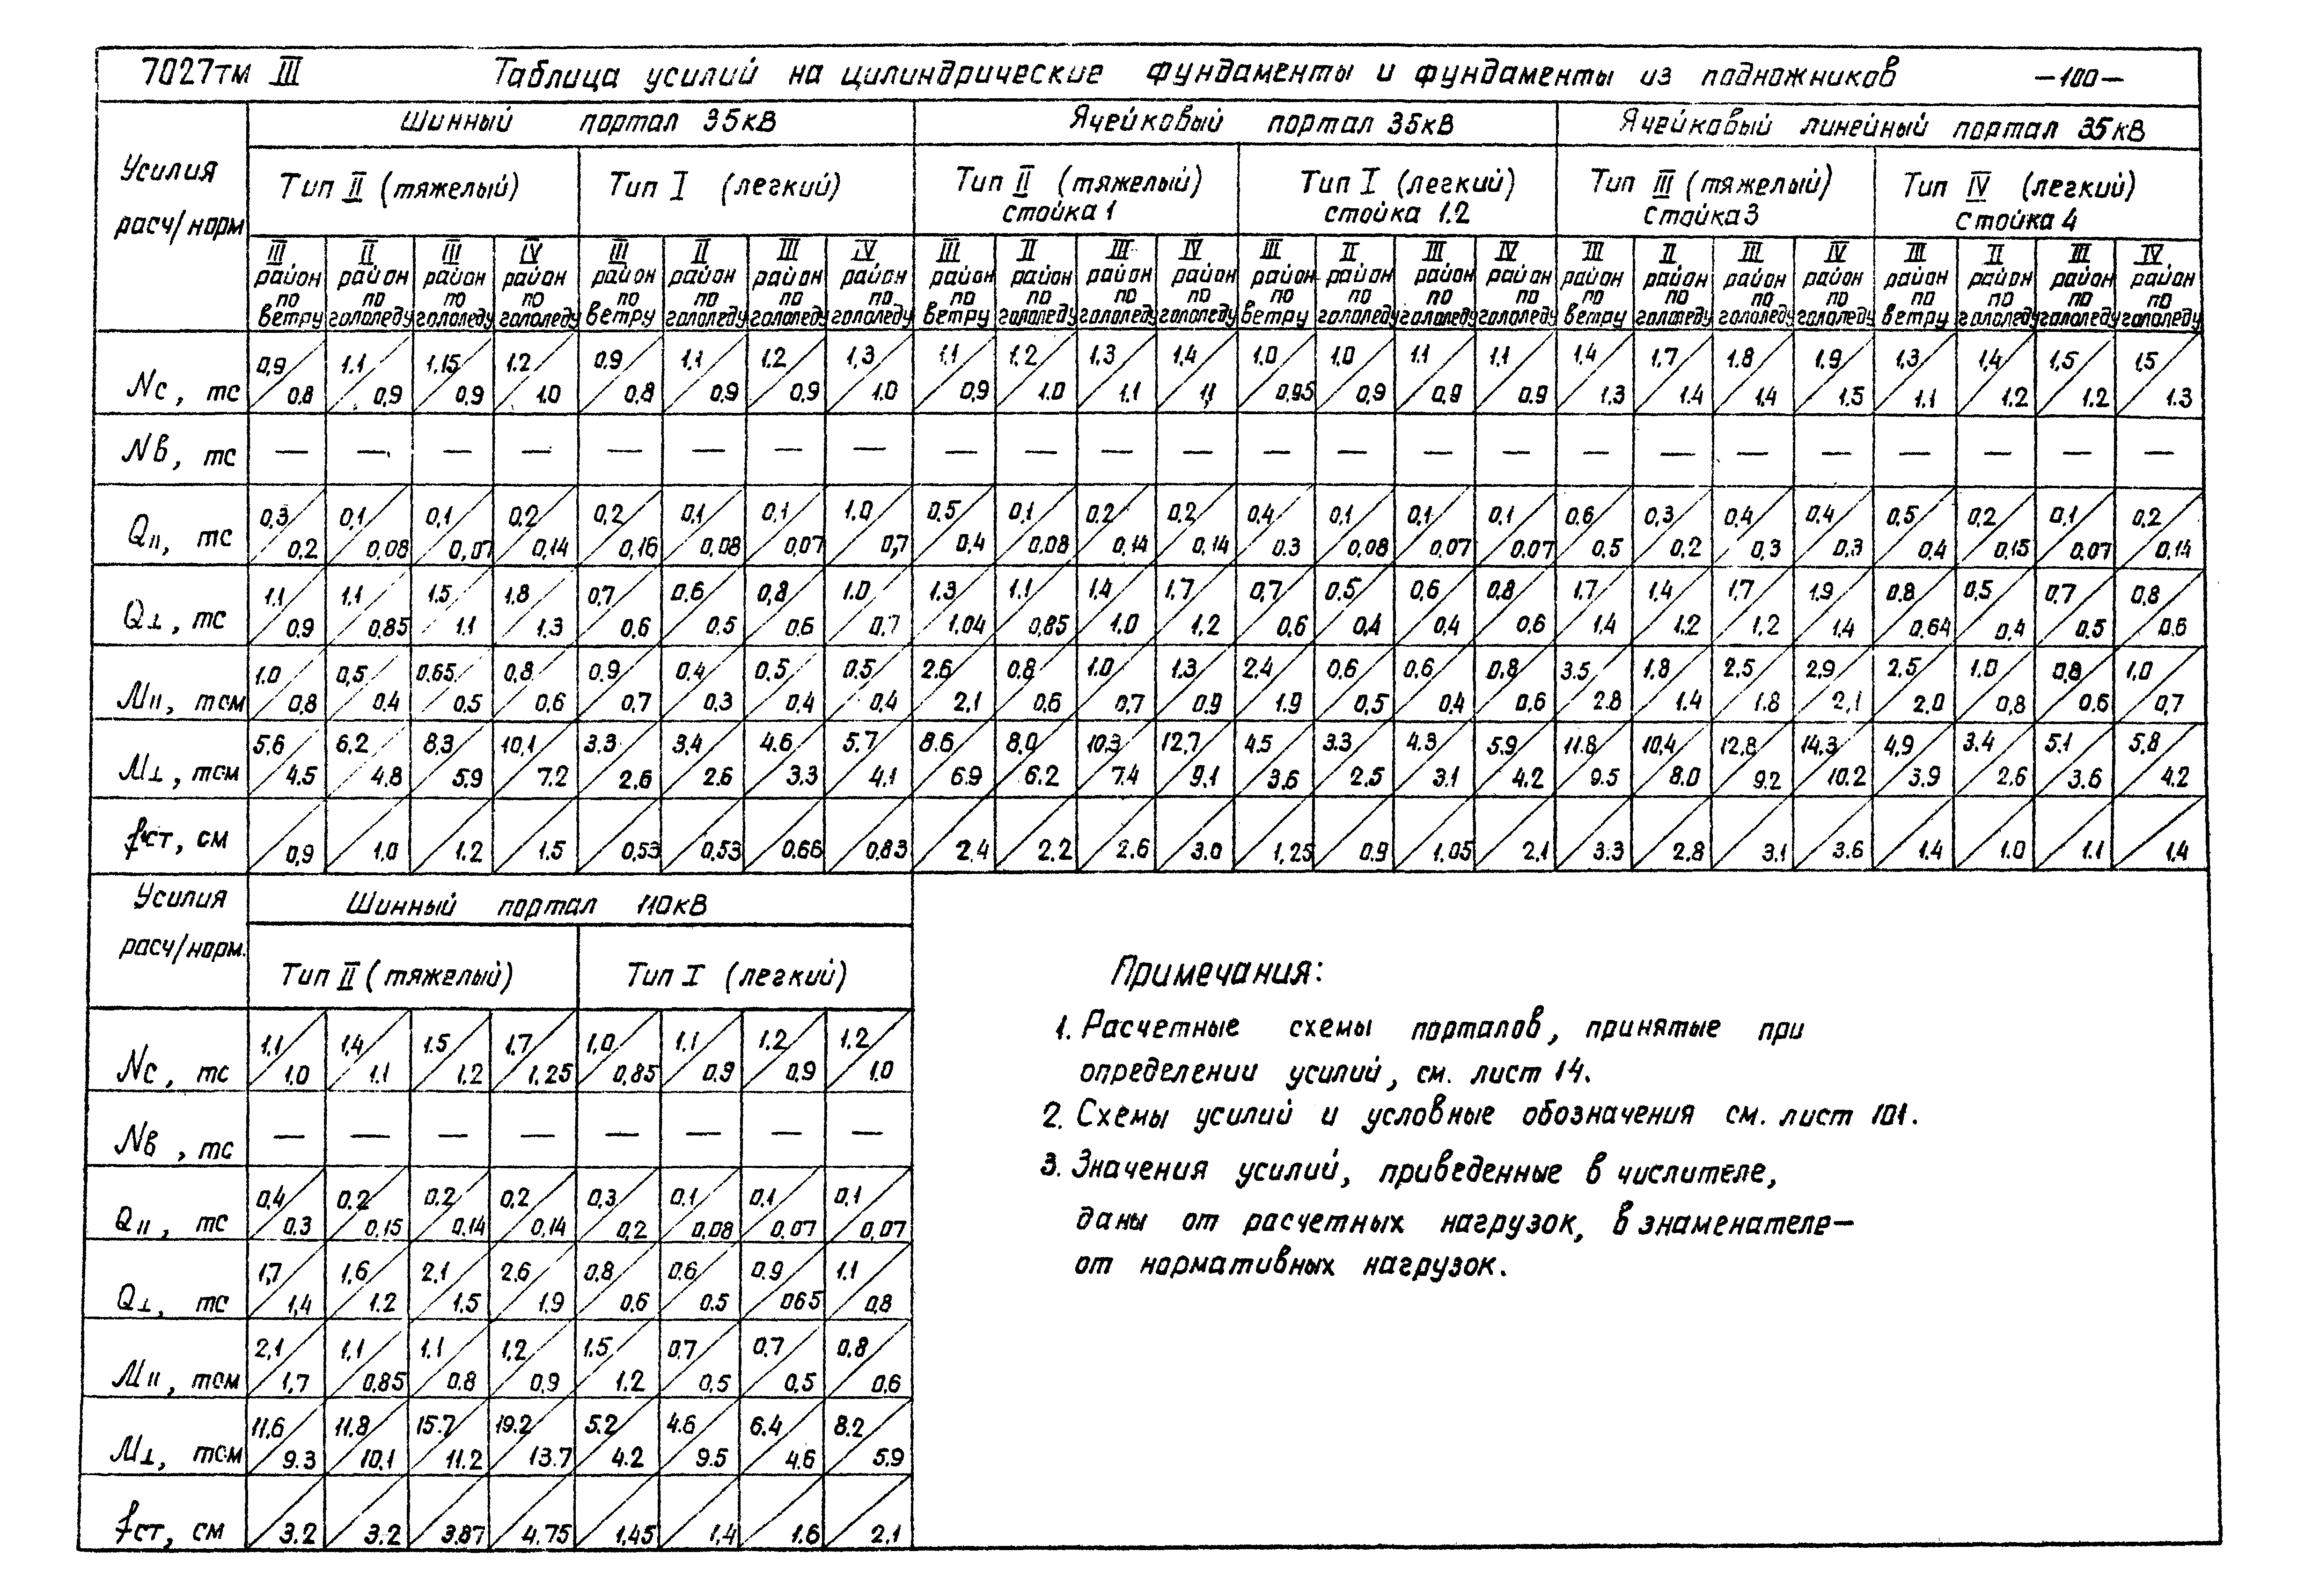 7027тм III Таблица усилий на цилиндрические фундаменты и фундаменты из подножников —100—
Усилия расч/норм Шинный портал 35кВ Ячейковый портал 35кВ Ячейковый линейный портал 35кВ
Тип II (тяжелый) Тип I (легкий) Тип II (тяжелый) стойка 1 Тип I (легкий) стойка 1.2 Тип III (тяжелый) стойка 3 Тип IV (легкий) стойка 4
III район по ветру II район по гололеду III район по гололеду IV район по гололеду III район по ветру II район по гололеду III район по гололеду IV район по гололеду III район по ветру II район по гололеду III район по гололеду IV район по гололеду III район по ветру II район по гололеду III район по гололеду IV район по гололеду III район по ветру II район по гололеду III район по гололеду IV район по гололеду III район по ветру II район по гололеду III район по гололеду IV район по гололеду
Nс, тс 0,9/0.8 1.1/0,9 1,15/0.9 1.2/1.0 0.9/0,8 1.1/0.9 1.2/0,9 1,3/1.0 1.1/0,9 1.2/1.0 1.3/1.1 1,4/1,1 1.0/0,95 1.0/0,9 1.1/0,9 1.1/0.9 1.4/1.3 1.7/1.4 1.8/1,4 1.9/1.5 1,3/1.1 1,4/1.2 1,5/1.2 1,5/1.3
Nв, тс — — — — — — — — — — — — — — — — — — — — — — — —
Q॥, тс 0,3/0.2 0,1/0,08 0,1/0,07 0,2/0,14 0,2/0,16 0,1/0,08 0,1/0,07 1.0/0,7 0,5/0,4 0,1/0.08 0,2/0,14 0,2/0,14 0,4/0.3 0,1/0,08 0,1/0,07 0,1/0,07 0,6/0,5 0,3/0,2 0,4/0,3 0,4/0,3 0,5/0,4 0,2/0,15 0,1/0,07 0,2/0,14
Q⊥, тс 1.1/0,9 1.1/0,85 1.5/1.1 1,8/1.3 0,7/0,6 0.6/0.5 0,8/0.6 1.0/0,7 1.3/1.04 1.1/0,85 1.4/1.0 1.7/1,2 0,7/0,6 0.5/0,4 0.6/0.4 0,8/0,6 1.7/1.4 1.4/1.2 1.7/1.2 1.9/1.4 0.8/0.64 0,5/0.4 0.7/0.5 0,8/0.6
М॥, тсм 1.0/0,8 0,5/0.4 0.65/0.5 0,8/0,6 0,9/0,7 0.4/0.3 0.5/0,4 0.5/0,4 2.6/2,1 0.8/0,6 1.0/0,7 1.3/0.9 2.4/1.9 0,6/0,5 0,6/0,4 0,8/0,6 3.5/2.8 1,8/1.4 2.5/1.8 2,9/2,1 2,5/2.0 1.0/0,8 0,8/0.6 1,0/0,7
М⊥, тсм 5.6/4.5 6.2/4.8 8.3/5.9 10,1/7.2 3.3/2.6 3,4/2.6 4.6/3.3 5.7/4,1 8.6/6.9 8,0/6.2 10.3/7.4 12,7/9,1 4.5/3.6 3.3/2.5 4.3/3.1 5.9/4.2 11.8/9.5 10,4/8.0 12,8/9.2 14,3/10.2 4,9/3.9 3.4/2.6 5.1/3.6 5,8/4.2
fст, см 0,9 1,0 1.2 1.5 0,53 0,53 0.66 0,83 2.4 2,2 2.6 3.0 1,25 0.9 1.05 2,1 3.3 2.8 3,1 3.6 1.4 1.0 1.1 1,4
Усилия расч/норм. Шинный портал 110кВ
Тип II (тяжелый) Тип I (легкий)
Nс, тс 1.1/1,0 1,4/1.1 1.5/1.2 1,7/1.25 1,0/0,85 1.1/0.9 1.2/0,9 1.2/1.0
Nв, тс — — — — — — — —
Q॥, тс 0,4/0.3 0.2/0,15 0.2/0,14 0,2/0,14 0,3/0,2 0.1/0,08 0,1/0,07 0,1/0,07
Q⊥, тс 1,7/1,4 1,6/1.2 2.1/1,5 2.6/1.9 0,8/0.6 0.6/0.5 0.9/065 1.1/0,8
М॥, тсм 2,1/1,7 1,1/0.85 1.1/0.8 1,2/0,9 1.5/1.2 0.7/0,5 0.7/0,5 0,8/0,6
М⊥, тсм 11,6/9.3 11.8/10,1 15.7/11.2 19.2/13.7 5.2/4.2 4.6/9.5 6.4/4.6 8.2/5.9
fст, см 3.2 3.2 3.87 4.75 1,45 1,4 1.6 2.1
Примечания:
1. Расчетные схемы порталов, принятые при
определении усилий, см. лист 14.
2. Схемы усилий и условные обозначения см. лист 101.
3. Значения усилий, приведенные в числителе,
даны от расчетных нагрузок, в знаменателе—
от нормативных нагрузок.